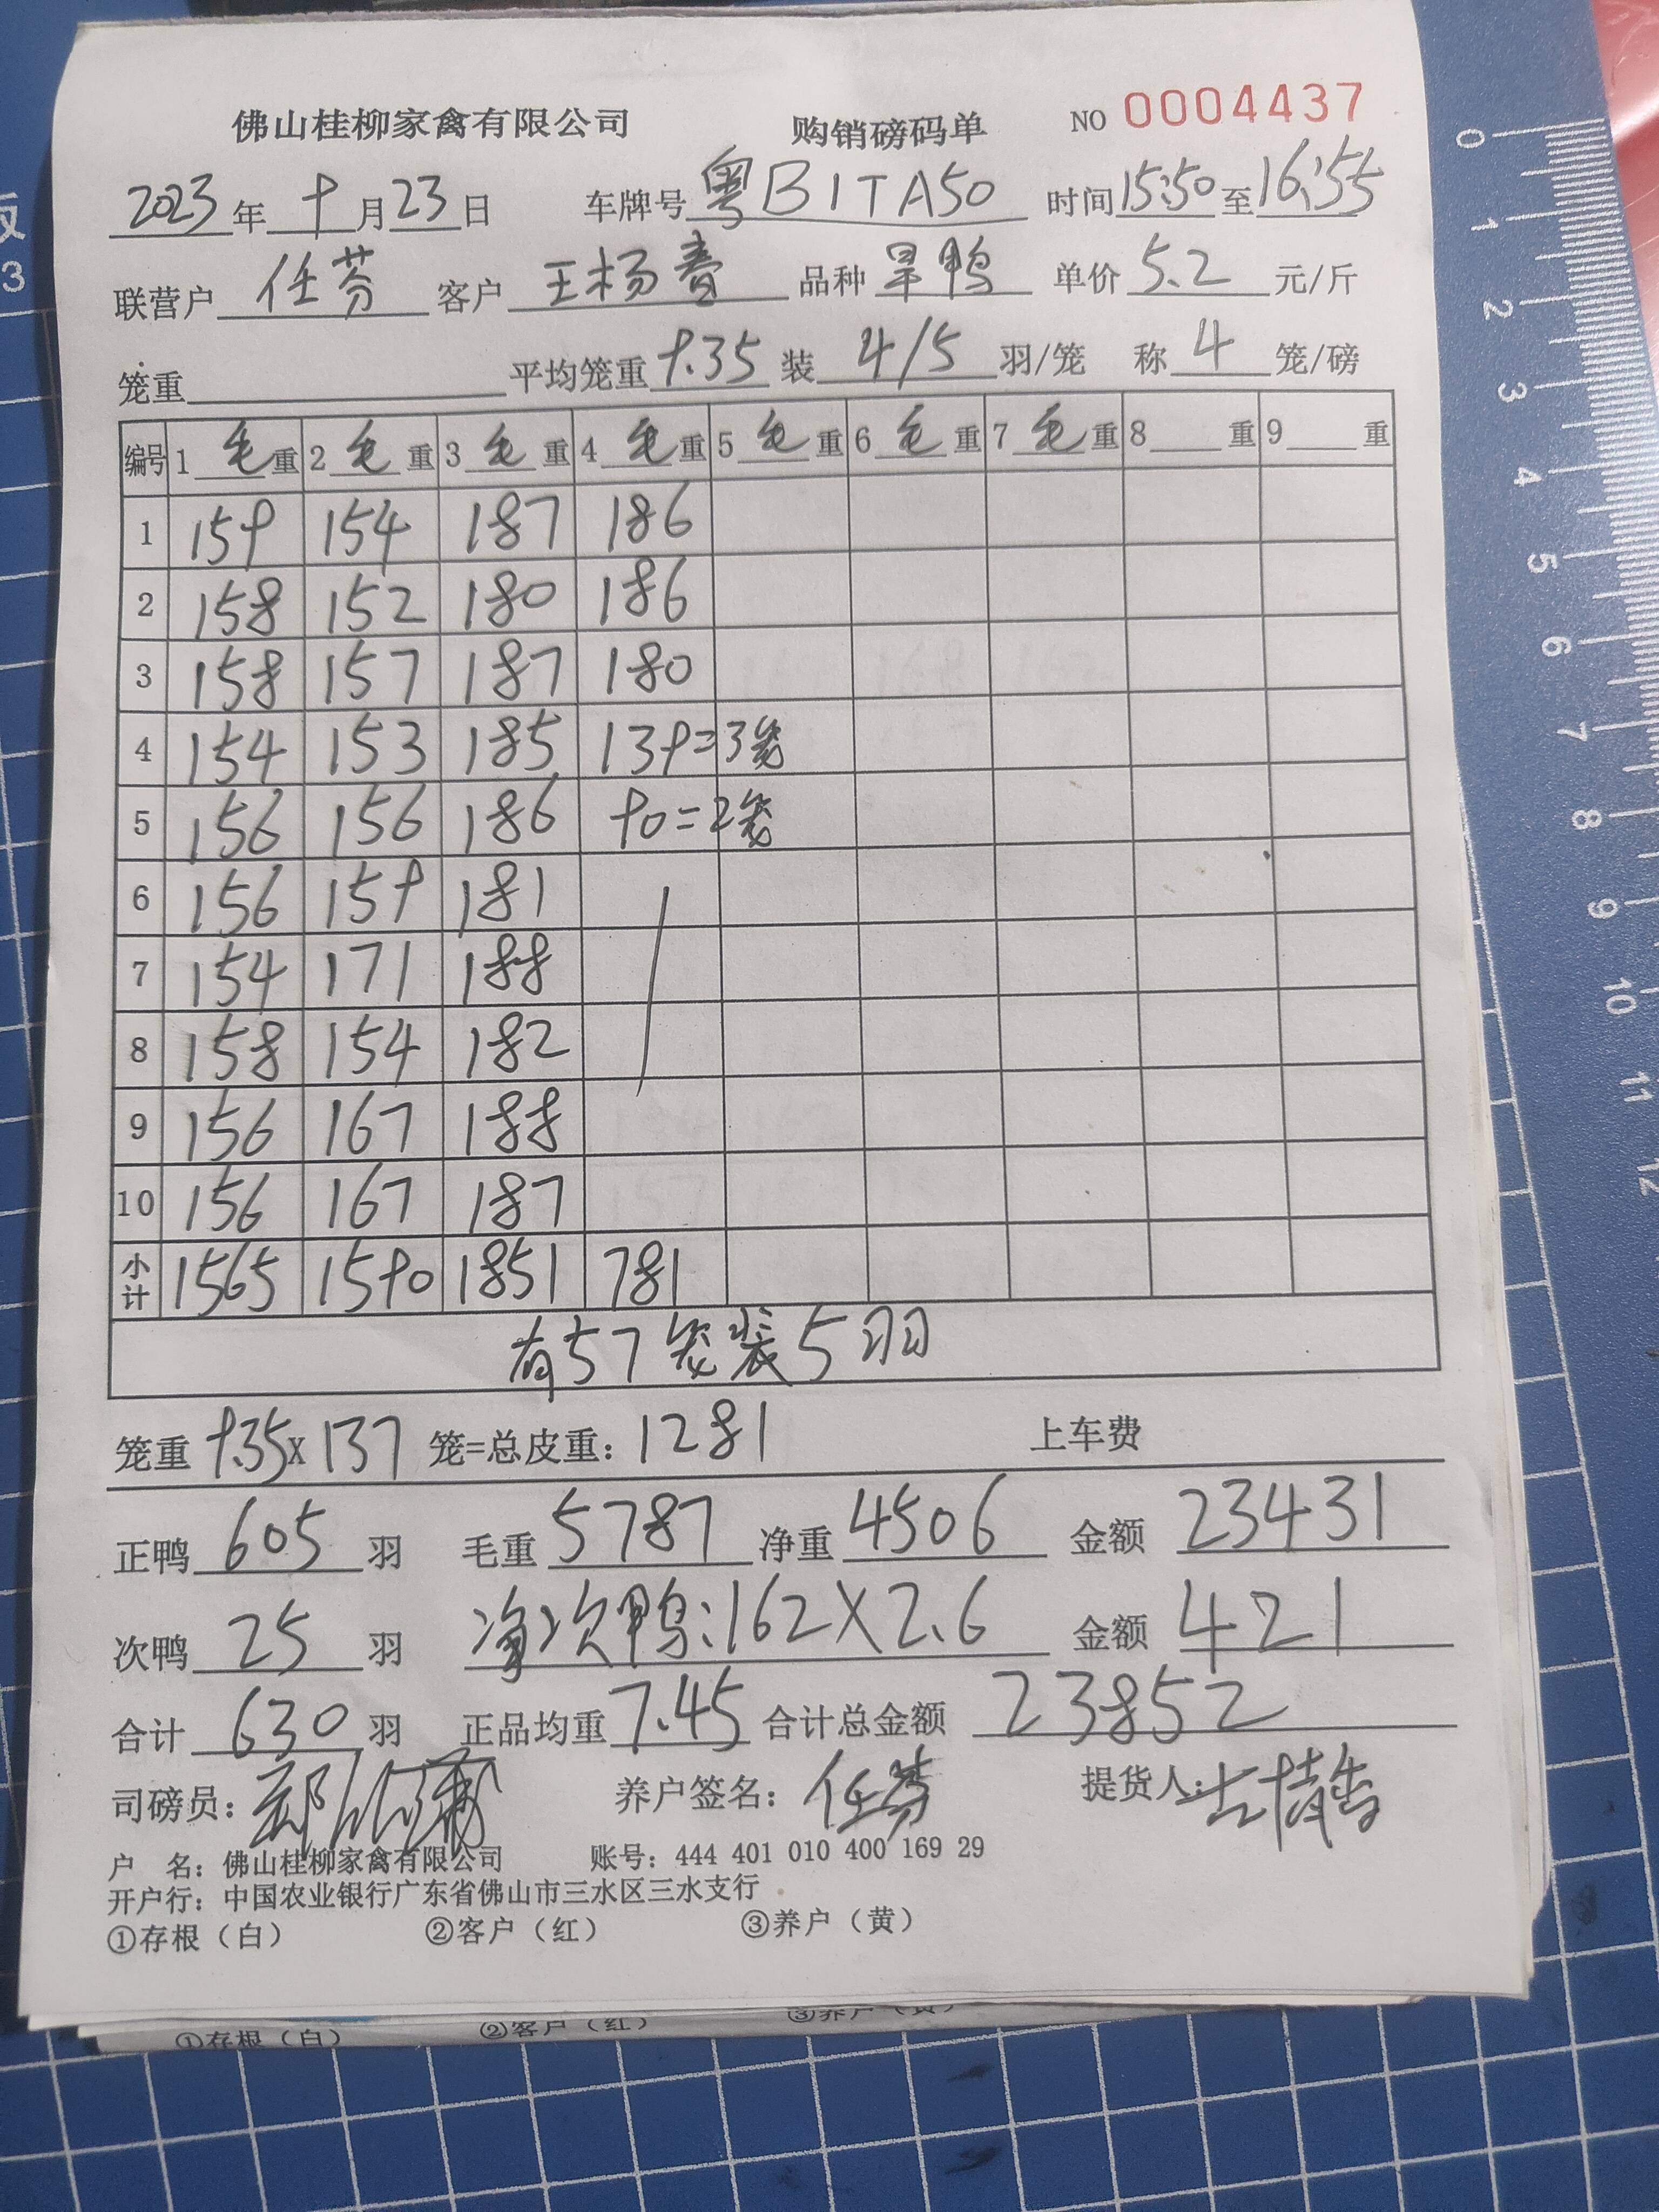 佛山桂柳家禽有限公司 购销磅码单 NO 0004437
2023年 十月23日 车牌号 粤B1TA50 时间15:50至16:55
联营户 任芬 客户 王杨春 品种 旱鸭 单价 5.2 元/斤
笼重 平均笼重 9.35 装 4/5 羽/笼 称 4 笼/磅
编号 1 毛重 2 毛重 3 毛重 4 毛重 5 毛重 6 毛重 7 毛重 8 重 9 重
1 159 154 187 186
2 158 152 180 186
3 158 157 187 180
4 154 153 185 139=3笼
5 156 156 186 90=2笼
6 156 159 181
7 154 171 188
8 158 154 182
9 156 167 188
10 156 167 187
小计 1565 1590 1851 781
有57笼装5羽
笼重 9.35X 137 笼=总皮重: 1281 上车费
正鸭 605 羽 毛重 5787 净重 4506 金额 23431
次鸭 25 羽 净次鸭:162X2.6 金额 421
合计 630 羽 正品均重 7.45 合计总金额 23852
司磅员: 养户签名: 任芬 提货人:
户 名: 佛山桂柳家禽有限公司 账号: 444 401 010 400 169 29
开户行: 中国农业银行广东省佛山市三水区三水支行
①存根（白） ②客户（红） ③养户（黄）
①存根（白） ②客户（红） ③养户（黄）
0 1 2 3 4 5 6 7 8 9 10 11 12
3